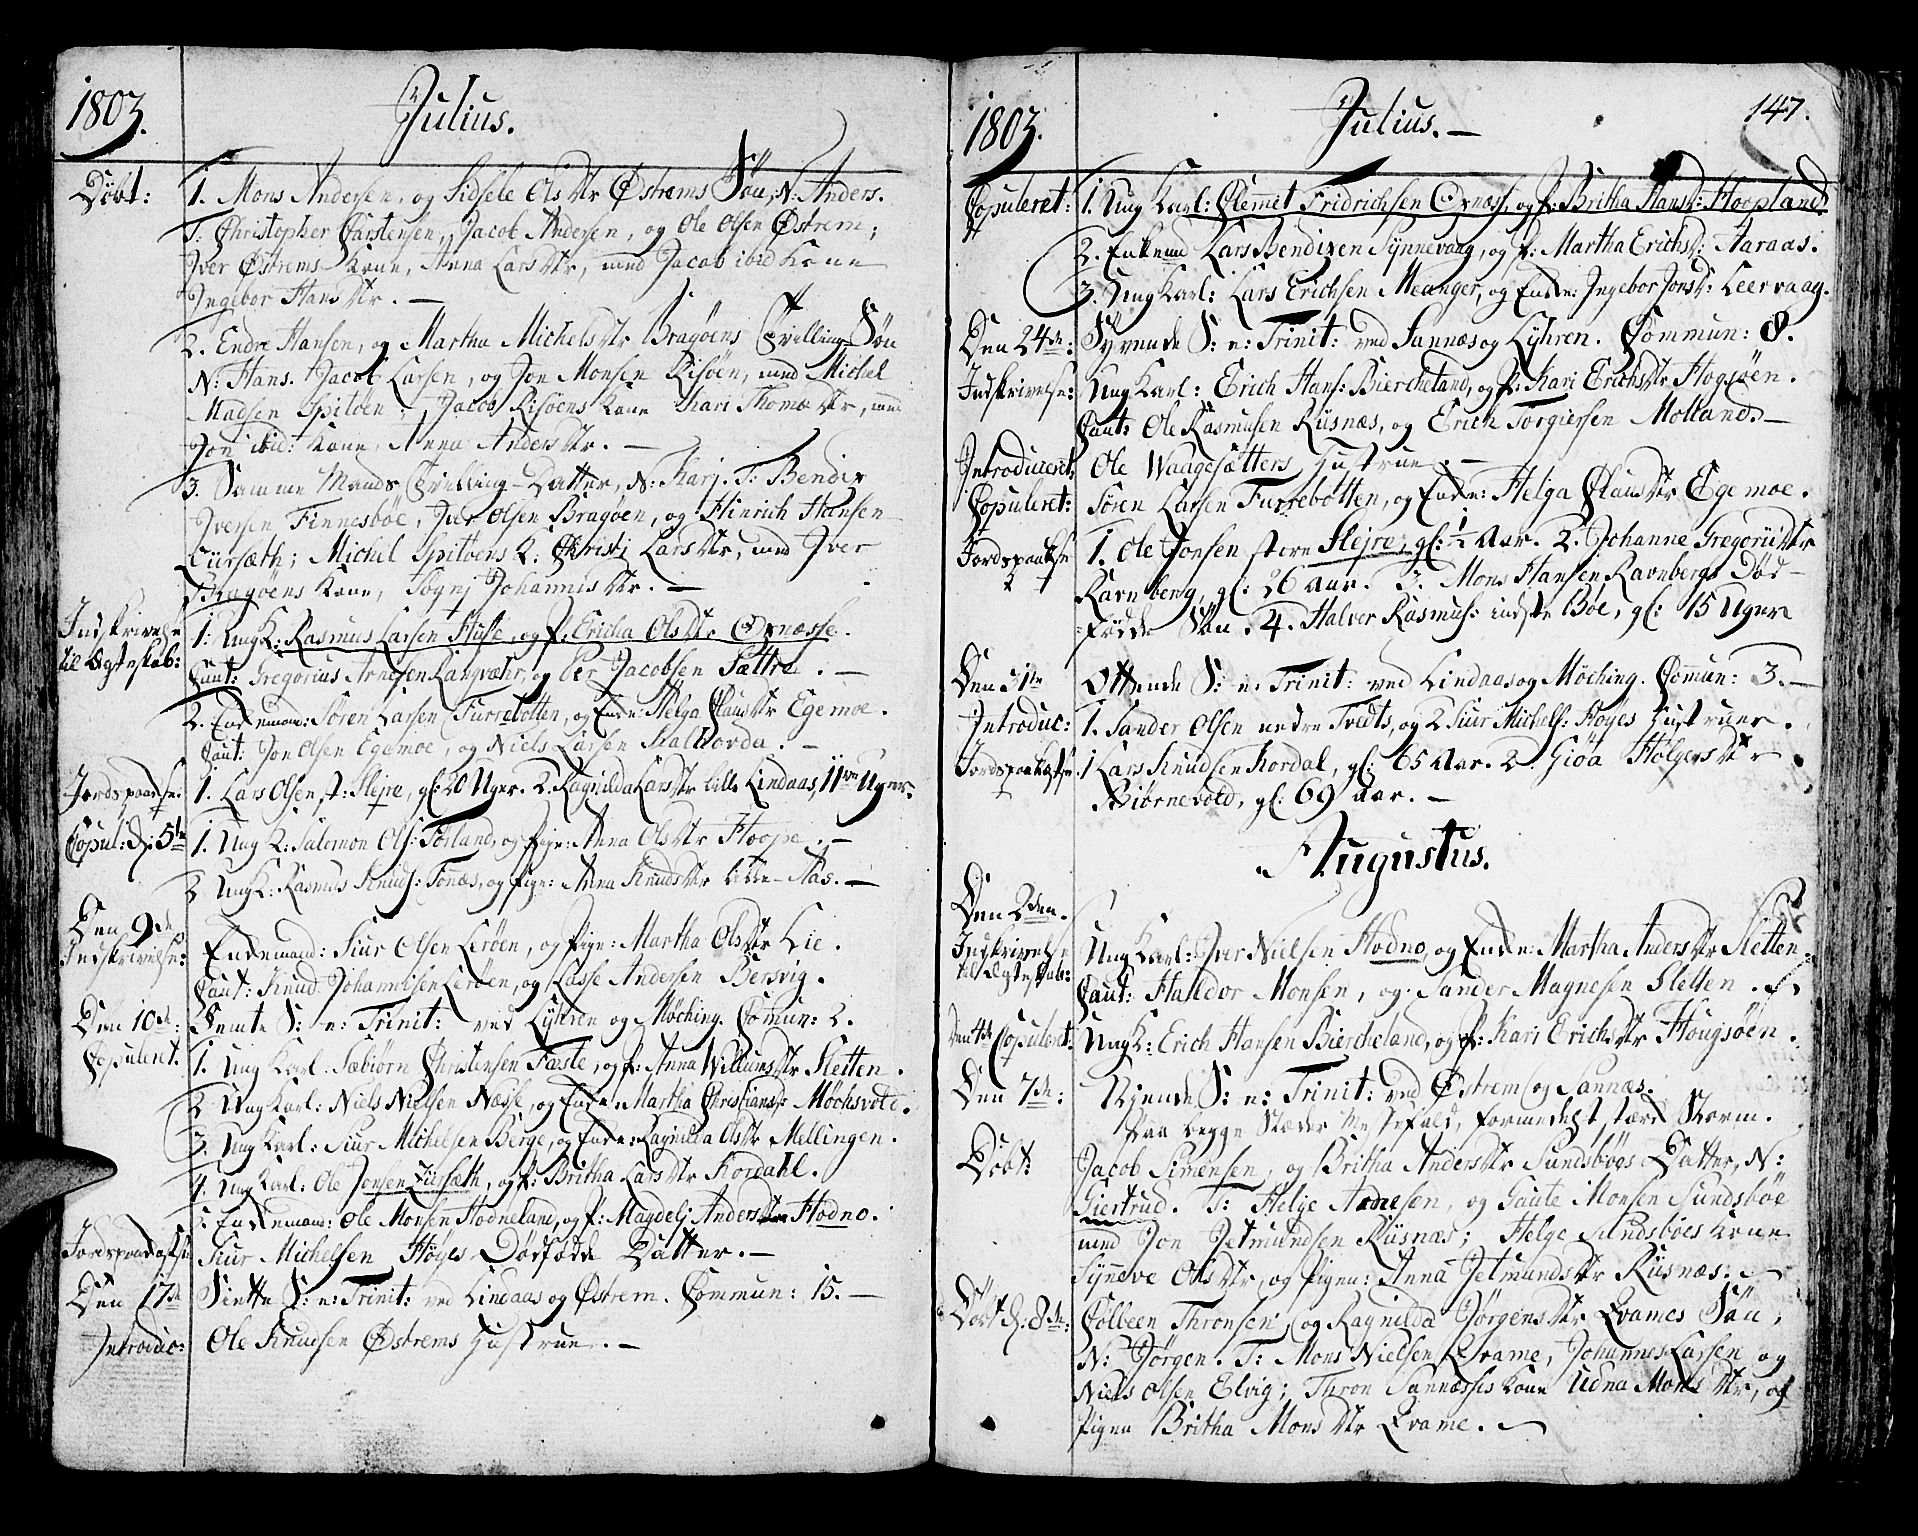 1803.
Julius.
Döbt:
1. Mons Andersen, og Sidsele Olsdtr Østrems Sön, N. Anders.
T: Christopher Carstensen, Jacob Andersen, og Ole Olsen Østrem;
Iver Østrems Kone, Anna Larsdtr, med Jacob ibid Kone
Ingebor Hansdtr. —
2. Endre Hansen, og Martha Michelsdtr Bragøens Tvilling Søn
N: Hans. Jacob Larsen, og Jon Monsen Risöen, med Michel
Madsen Spitöen; Jacob Risöens Kone Kari Thomædtr, med
Jon ibid: Kone, Anna Andersdtr. —
3. Samme Mands Tvilling-Datter, N: Karj. T: Bendix
Iversen Finnesböe, Iver Olsen Bragöen, og Hinrich Hansen
Michel Spitöens K. Christj Larsdtr, med Iver
Bragöens Kone, Sognj Johannisdtr. —
Indskrivelse
til Ægteskab:
1: Ung K: Rasmus Larsen Huste, og P. Ericha Olsdtr Oxnæsse.
Caut: Gregorius Arnesen Langvæhr, og Per Jacobsen Sættre. —
2. Enkemand: Sören Larsen Furrebotten, og Enke: Helga Clausdtr Egemoe.
Caut: Jon Olsen Egemoe, og Niels Larsen Kalhovda. —
Jordspaakastelse
1. Lars Olsen st: Hejre, gl: 20 Uger. 2. Ragnilda Larsdtr lille Lindaas, 11ve Uger.
Copul: d: 5te
1. Ung K: Salomon Ols: Sørland, og Pige: Anna Olsdtr Hoope. —
2 Ung K: Rasmus Knuds: Tonæs, og Pige: Anna Knudsdtr lille-Aas. —
Den 9de
Indskrivelse:
Enkemand: Siur Olsen Leröen, og Pige: Martha Olsdtr Lie.
Caut: Knud Johannisen Leröen, og Lasse Andersen Bersvig.
Den 10de:
Femte S: e: Trinit: ved Lyhren og Möching. Commun: 2.
Copuleret.
1. Ung Karl: Sæbiörn Christensen Fæste, og P: Anna Willumsdtr Sletten.
2 Ung Karl: Niels Nielsen Næsse, og Enke: Martha Christiansd: Möchsvold.
3. Ung Karl: Siur Michelsen Berge, og Enke: Ragnilda Olsdtr Mellingen.
4. Ung Karl: Ole Jonsen, og P: Britha Larsdtr Kordahl.
5 Enkemand: Ole Monsen Hodneland, og P: Magdelj Andersdtr Hodno.
Jordspaakastelse
Siur Michelsen Höyes Dödfødde Datter. —
Den 17de
Siette S: e: Trinit: ved Lindaas og Østrem. Commun: 15. —
Introduc:
Ole Knudsen Østrems Hustrue. —
1803.
Julius. —
147.
Copuleret:
1. Ung Karl: Clemet Fridrichsen Oxnæs, og P: Britha Hansd: Hoopland.
2. Enkemd Lars Bendixen Synnevaag, og P: Martha Erichsd: Aaraas.
3. Ung Karl: Lars Erichsen Meanger, og Enke: Ingebor Jonsd: Leervaag.
Den 24de:
Syvende S: e: Trinit: ved Sannæs og Lyhren. Commun: 8.
Indskrivelse:
Ung Karl: Erich Hans: Biercheland, og P: Kari Erichsdtr Hogsöen.
Caut: Ole Rasmusen Riisnæs, og Erich Torgiersen Molland. —
Introduceret:
Ole Waagesætters Hustrue. —
Copuleret:
Sören Larsen Furrebotten, og Enke: Helga Clausdtr Egemoe.
Jordspaakastelse
1. Ole Jonsen store Hejre, gl: 1/2 Aar. 2. Johanne Gregoriidtr
Ravnberg, gl: 26 Aar. 3. Mons Hansen Ravnbergs Död-
fødde Sön. 4. Halver Rasmus: indste Böe, gl: 15 Uger
Den 31te
Ottende S: e: Trinit: ved Lindaas og Möching. Commun: 3. —
Introduc:
1. Sander Olsen nedre Tvedts, og 2 Siur Michels: Höyes Hustruer.
Jordspaakastelse.
1 Lars Knudsen Kordal, gl: 65 Aar. 2. Giöa Holgersdtr
Biörnevold, gl: 69 aar. —
Augustus.
Den 2den.
Indskrivelse
til Ægteskab:
Ung Karl: Iver Nielsen Hodno, og Enke: Martha Andersdtr Sletten.
Caut: Halldor Monsen, og Sander Magnesen Sletten.
Den 4de Copuleret:
Ung K: Erich Hansen Biercheland, og P: Kari Erichsdtr Hougsöen.
Den 7de:
Niende S: e: Trinit: ved Østrem og Sannæs.
Paa begge Stæder Messefald, formedelst stærk Storm.
Döbt:
Jacob Simensen, og Britha Andersdtr Sundsböes Datter, N:
Giertrud. T: Helje Arnesen, og Gaute Monsen Sundsböe
med Jon Jetmundsen Riisnæs; Helge Sundsböes Kone
Synneve Olsdtr, og Pigen: Anna Jetmundsdtr Riisnæs. —
Döbt d: 8de:
Colbeen Thronsen, og Ragnilda Jörgensdtr Qvames Sön,
N: Jörgen. T: Mons Nielsen Qvame, Johannes Larsen og
Niels Olsen Elvig; Thron Sannæsses Kone Udna Monsdtr, og
Pigen Britha Monsdtr Qvame. —